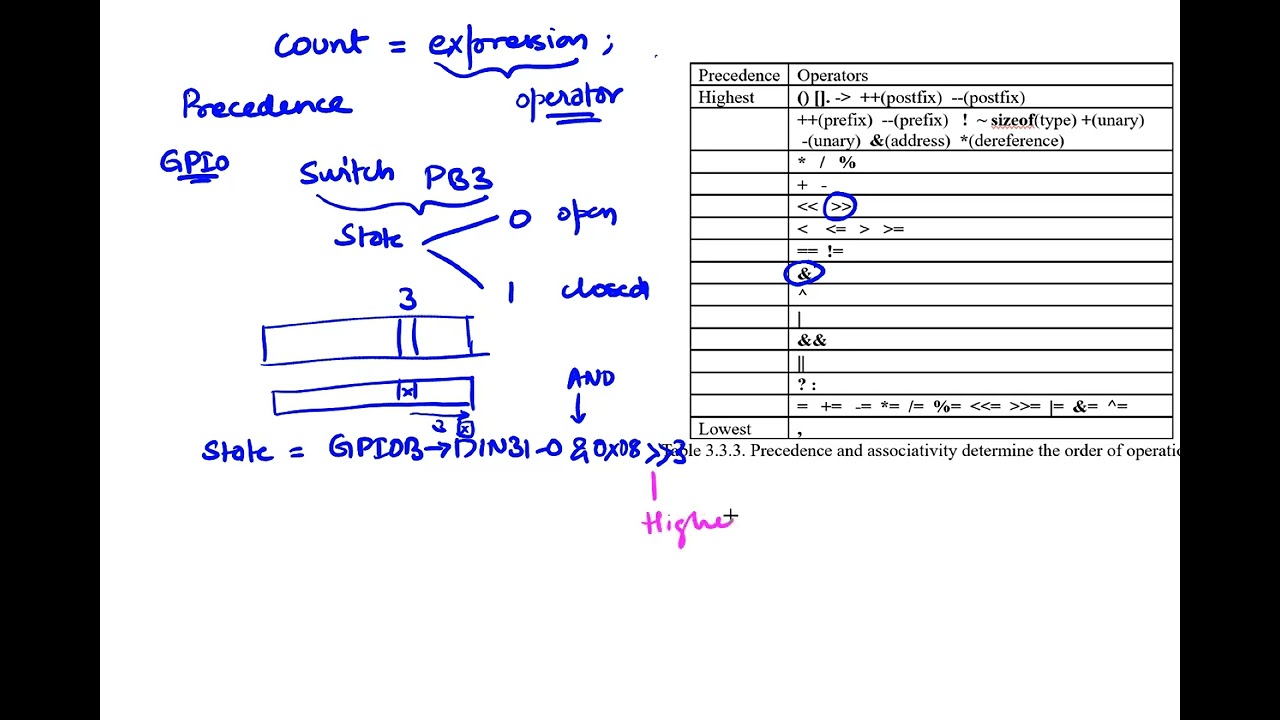 count = expression ;
Precedence
operator
GPIO
Switch PB3
State
0 open
1 closed
3
x
3 x
AND
State = GPIOB→DIN31-0 & 0x08 >>3
Highe
Precedence Operators
Highest () []. -> ++(postfix) --(postfix)
++(prefix) --(prefix) ! ~ sizeof(type) +(unary)
-(unary) &(address) *(dereference)
* / %
+ -
<< >>
< <= > >=
== !=
&
^
|
&&
||
? :
= += -= *= /= %= <<= >>= |= &= ^=
Lowest ,
3.3.3. Precedence and associativity determine the order of